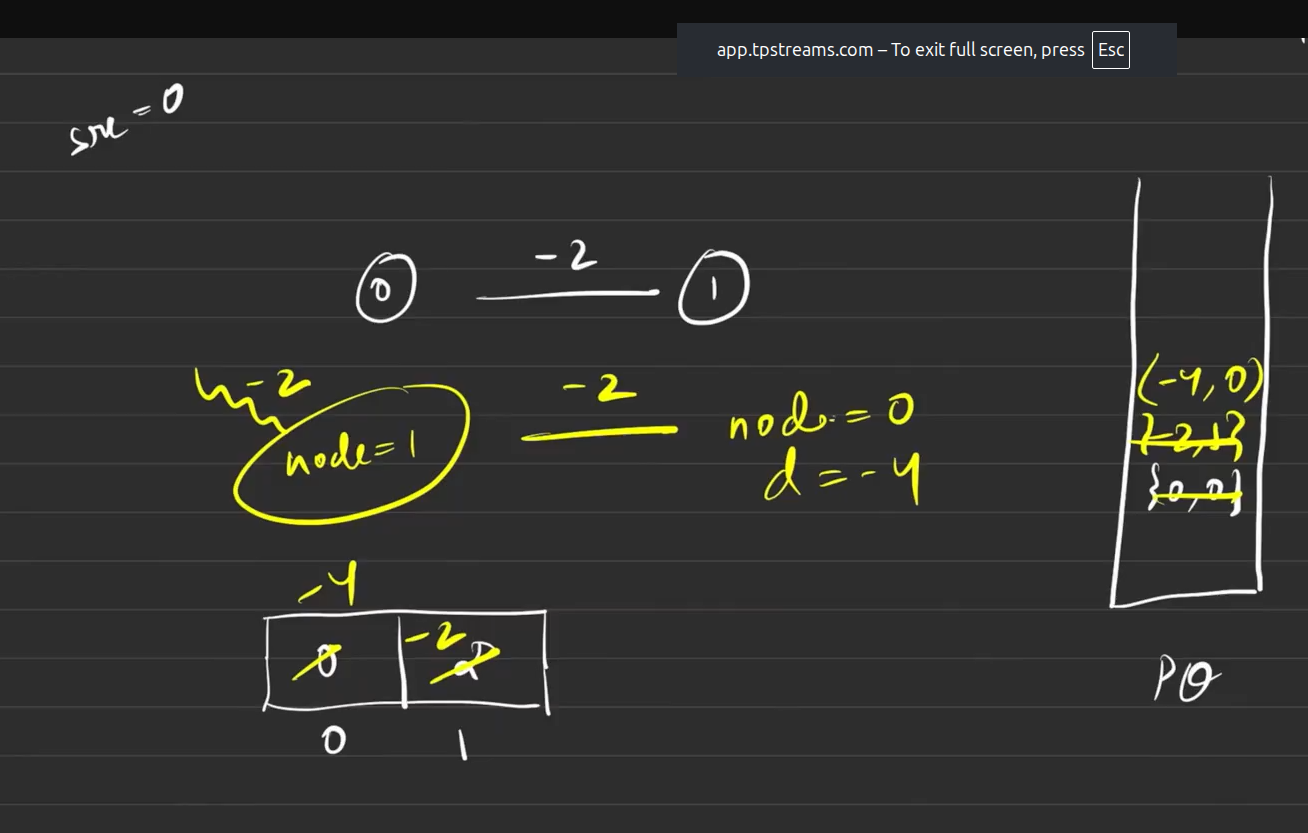 app.tpstreams.com – To exit full screen, press Esc
src = 0
-2
0
1
-2
-2
node = 1
node = 0
d = -4
(-4, 0)
{-2, 1}
{0, 0}
-4
0
-2
0
1
PQ